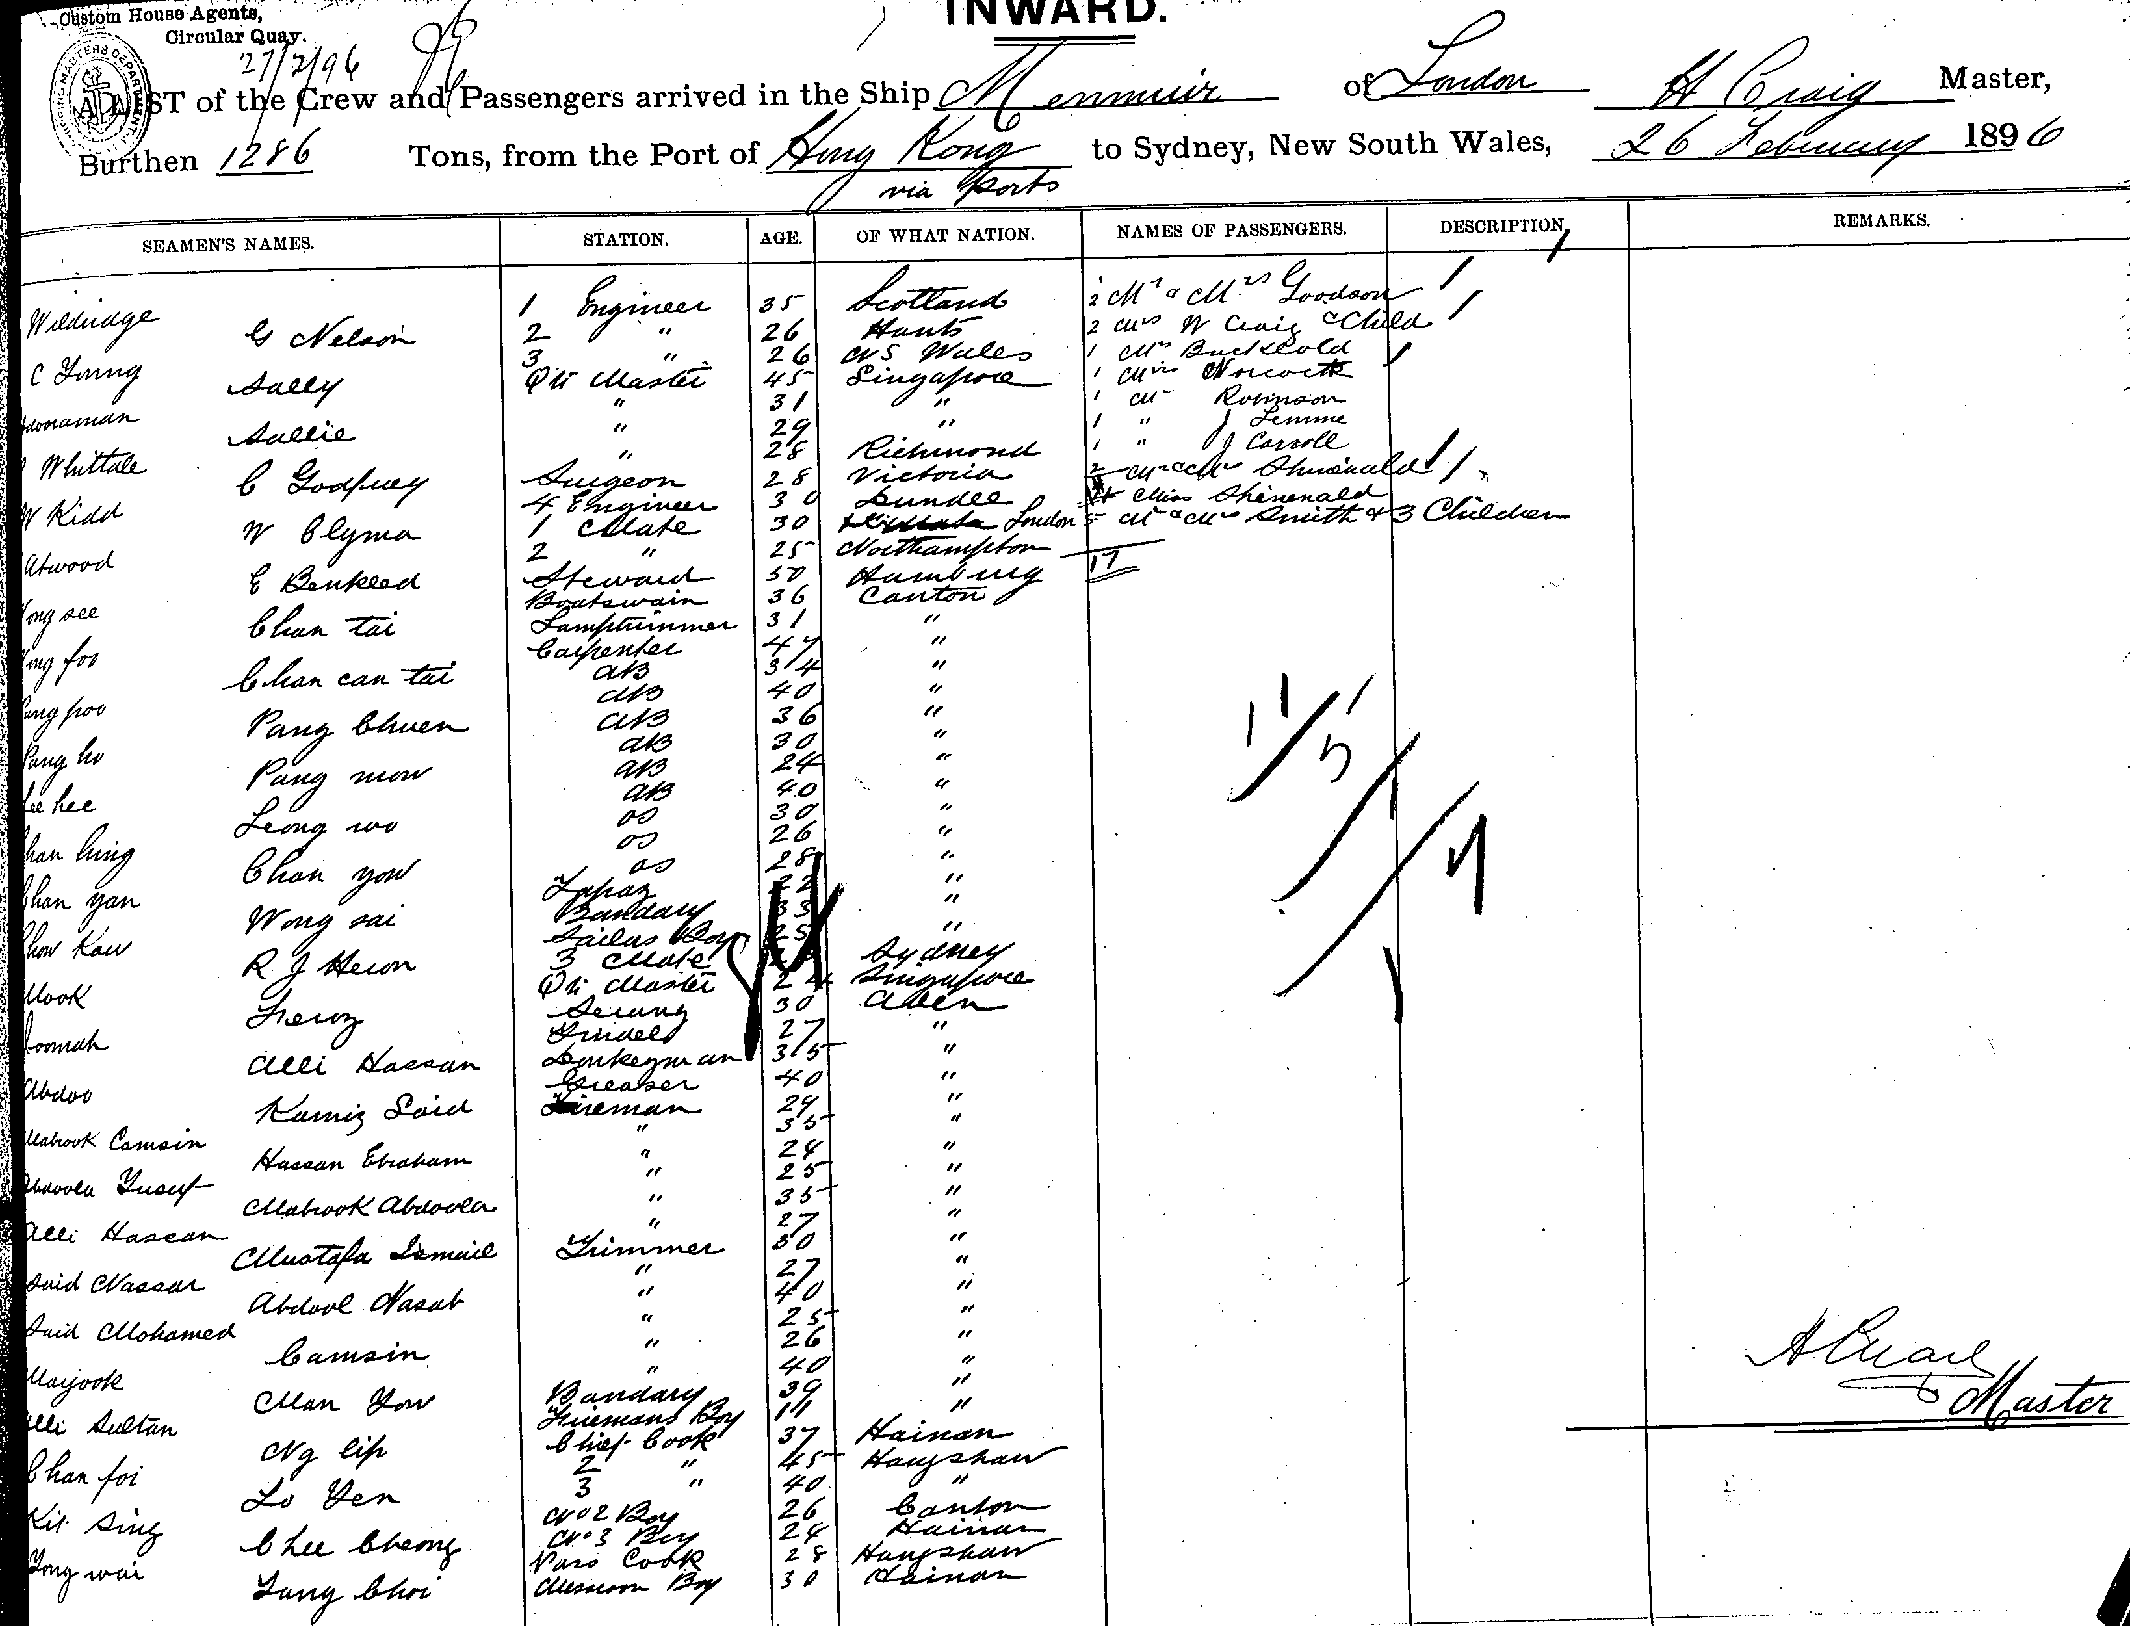 Custom House Agents,
Circular Quay.
INWARD.
27/2/96
A LIST of the Crew and Passengers arrived in the Ship Menmuir of London H Craig Master,
Burthen 1286 Tons, from the Port of Hong Kong to Sydney, New South Wales, 26 February 1896
via Ports
SEAMEN'S NAMES. STATION. AGE. OF WHAT NATION. NAMES OF PASSENGERS. DESCRIPTION. REMARKS.
Wildridge 1 Engineer 35 Scotland 2 Mr & Mrs Goodson
G Nelson 2 " 26 Hants 2 Mrs W Craig & Child
C Young 3 " 26 N S Wales 1 Mrs Buckhold
Sally Qr Master 45 Singapore 1 Miss
" 31 " 1 Mr Robinson
Sallie " 29 " 1 " J Lemme
Whittale " 28 Richmond 1 " J Carroll
C Godfrey Surgeon 28 Victoria 2 Mr & Mrs
W Kidd 4 Engineer 30 Dundee Miss
W Clyma 1 Mate 30 London 5 Mr & Mrs Smith & 3 Children
Atwood 2 " 25 Northampton 17
E Benkled Steward 50 Hamburg
ong see Boatswain 36 Canton
Chan tai Lamptrimmer 31 "
ong foo Carpenter 47 "
Chan can tai AB 34 "
ang poo AB 40 "
Pang Chuen AB 36 "
Pang ho AB 30 "
Pang mow AB 24 "
Lee hee AB 40 "
Leong wo OS 30 "
han hing OS 26 "
Chan yow OS 28 "
Chan yan Topaz 22 "
Wong sai Bandary 33 "
Chow Kaw Sailors Boy 25 "
R J Heron 3 Mate Sydney
Mook Qr Master 24 Singapore
Feroz Serang 30 Aden
oomah Tindel 27 "
Alli Hassan Donkeyman 35 "
Abdoo Greaser 40 "
Kamis Said Fireman 29 "
Mabrook Camsin " 35 "
Hassan Ebraham " 24 "
Abdoola Yusuf " 25 "
Mabrook Abdoola " 35 "
Alli Hassan " 27 "
Mustafa Ismail Trimmer 30 "
Said Nassar " 27 "
Abdool Nasab " 40 "
Said Mohamed " 25 "
Camsin " 26 "
Marjook " 40 "
Man Yow Bandary 39 "
Alli Sultan Firemans Boy 14 "
Ng lip Chief Cook 37 Hainan
Chan foi 2 " 45 Hangshaw
Lo Yen 3 " 40 "
Kit Sing No 2 Boy 26 Canton
Chee Cheong No 3 Boy 24 Hainan
Tong wai Cook 28 Hangshaw
Tang Choi Messroom Boy 30 Hainan
Master